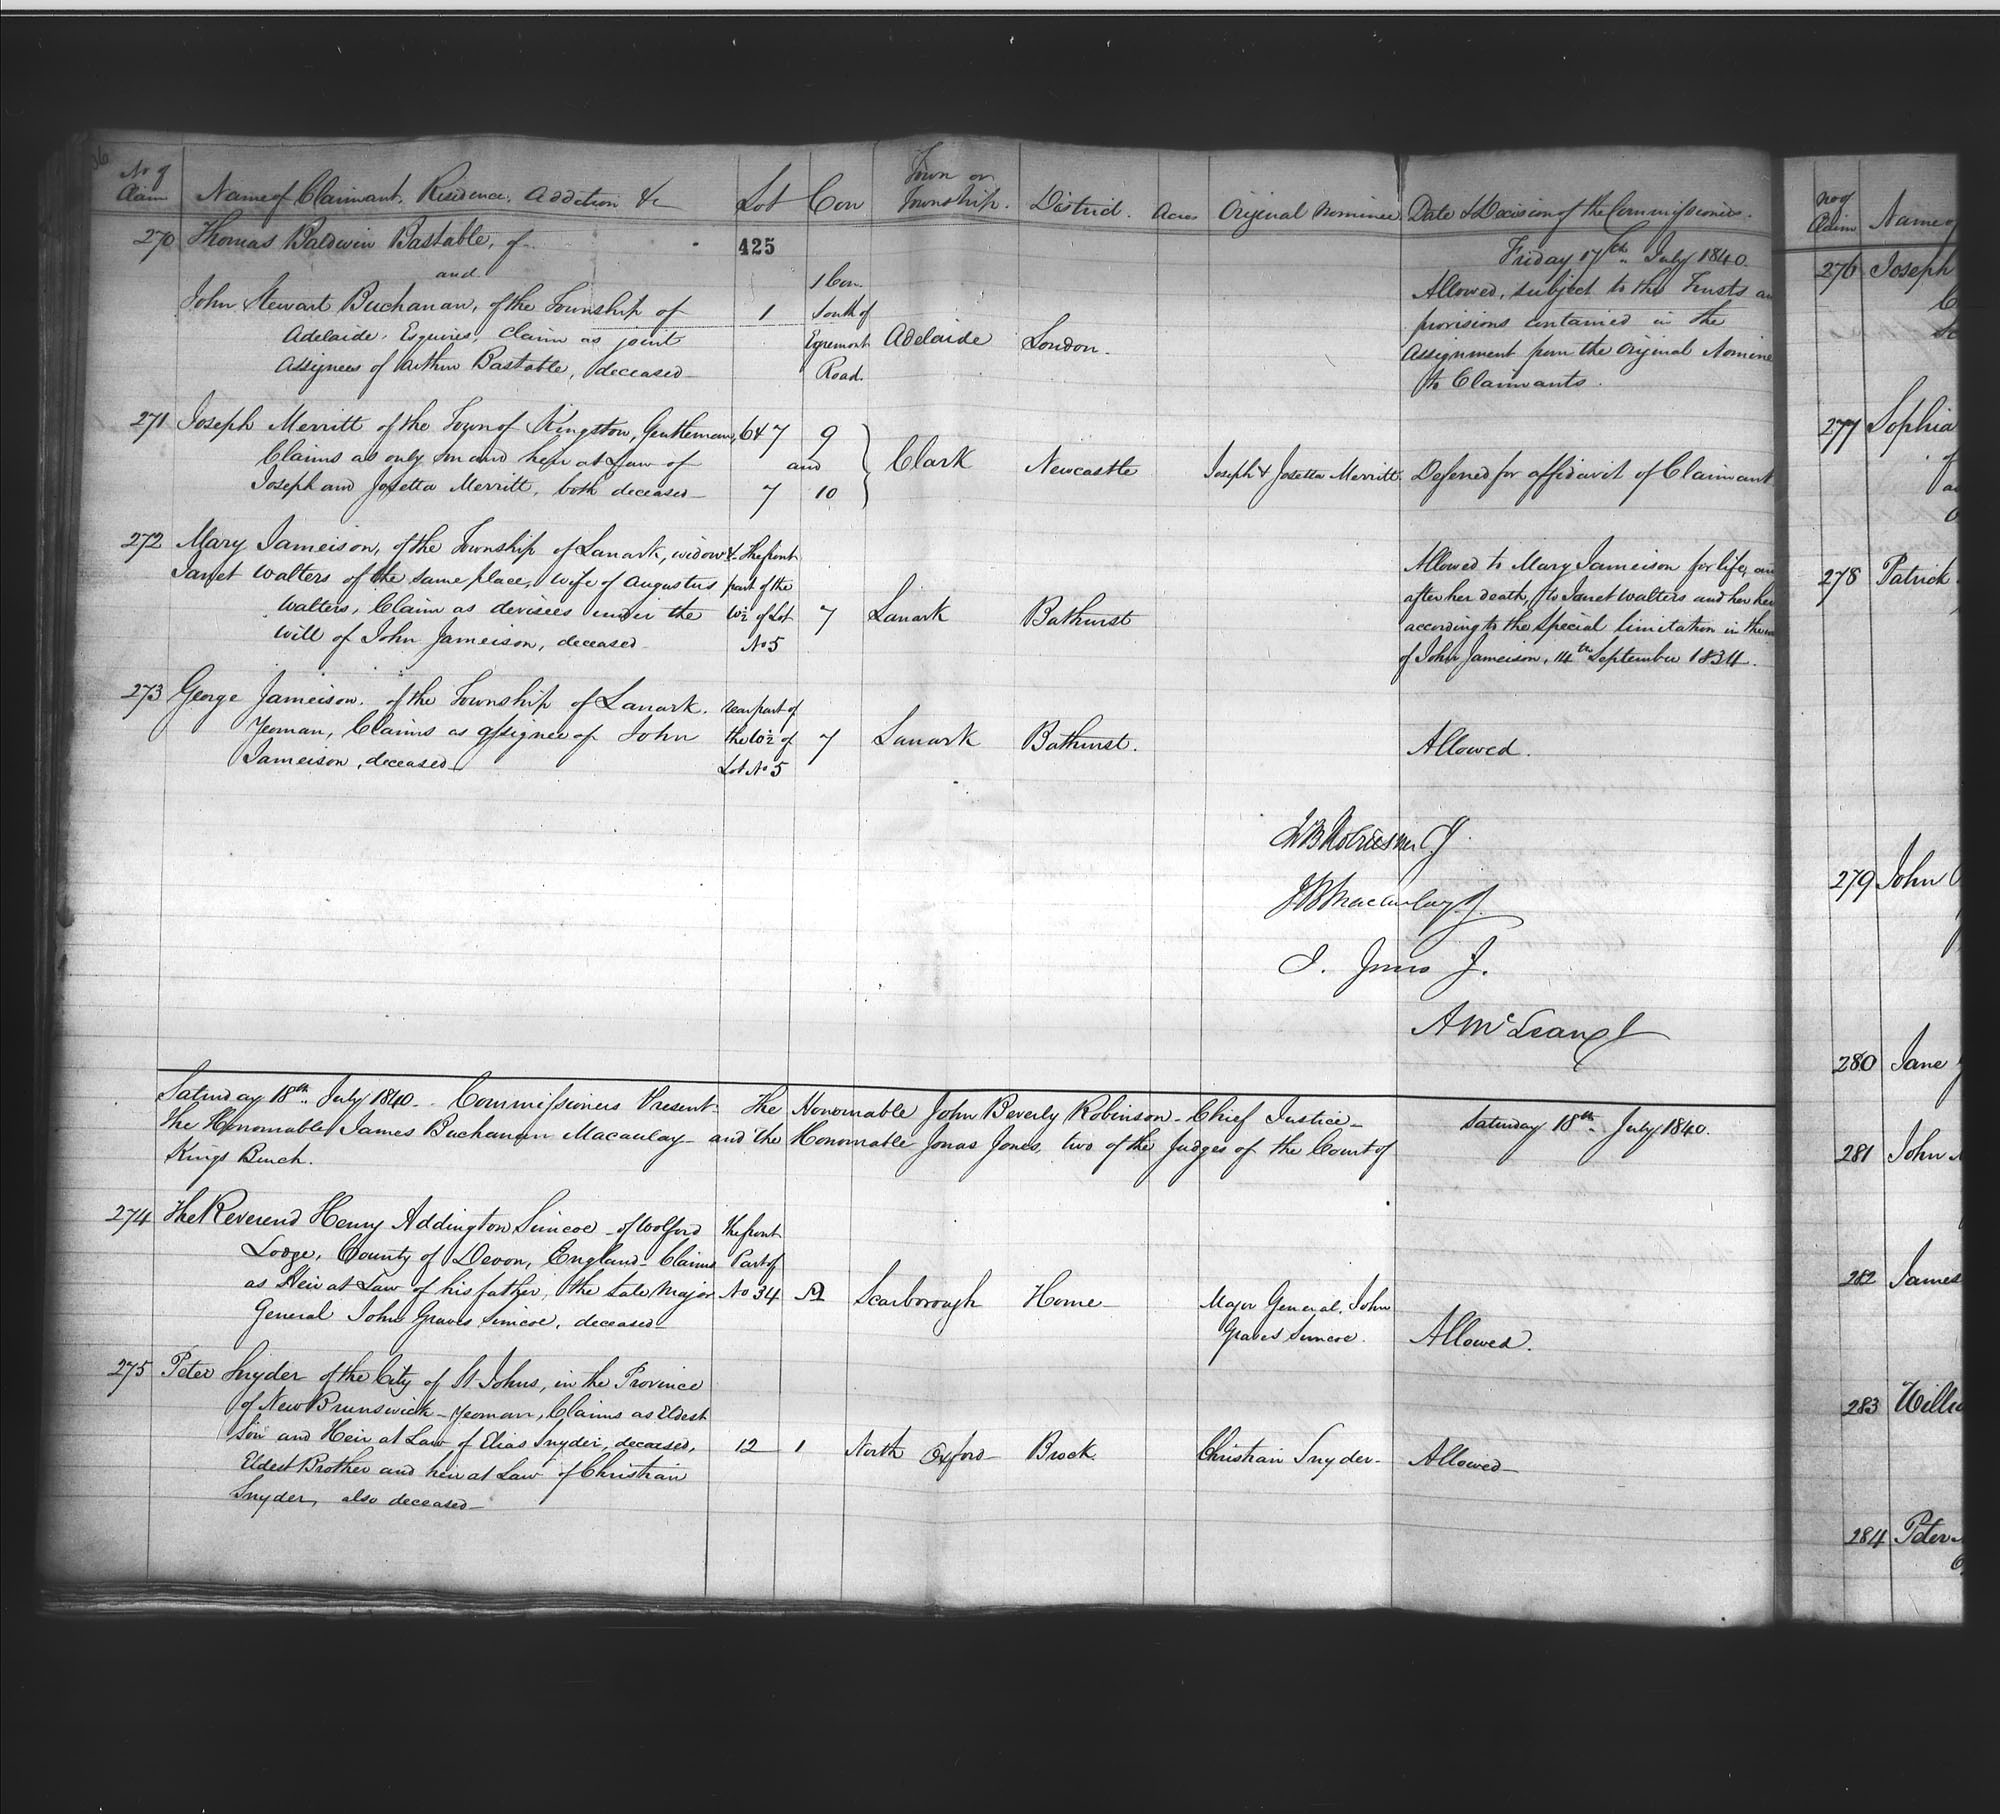 No of Claim
Name of Claimant, Residence, Addition &c
Lot
Con
Town or Township.
District.
Acres
Original Nominee
Date & Decision of the Commissioners.
425
Friday 17th July 1840.
270 Thomas Baldwin Bastable, of
and
John Stewart Buchanan, of the Township of
Adelaide, Esquires, Claim as joint
Assignees of Arthur Bastable, deceased
1
1 Con.
South of
Egremont
Road.
Adelaide
London.
Allowed, subject to the Trusts
provisions contained in the
Assignment from the Original Nomine
to Claimants.
271 Joseph Merritt of the Town of Kingston, Gentleman,
Claims as only son and heir at Law of
Joseph and Josetta Merritt, both deceased
6 & 7 9
and
7 10
Clark
Newcastle
Joseph & Josetta Merritt.
Deferred for affidavit of Claimant
272 Mary Jameison, of the Township of Lanark, widow &
Janet Walters of the same place, wife of Augustus
Walters, Claim as devisees under the
Will of John Jameison, deceased
The front
part of the
W½ of Lot
No 5
7
Lanark
Bathurst
Allowed to Mary Jameison for life, an
after her death, to Janet Walters and her hei
according to the special limitation in the
of John Jameison, 14th September 1834.
273 George Jameison, of the Township of Lanark.
Yeoman, Claims as assignee of John
Jameison, deceased
rear part of
the W½ of
Lot No 5
7
Lanark
Bathurst.
Allowed.
J B Robinson CJ
J B Macaulay J.
J. Jones J.
A McLean J
Saturday 18th July 1840. Commissioners Present. The Honourable John Beverly Robinson Chief Justice
The Honourable James Buchanan Macaulay and the Honourable Jonas Jones, two of the Judges of the Court of
Kings Bench.
Saturday 18th July 1840.
274 The Reverend Henry Addington Simcoe of Wolford
Lodge, County of Devon, England Claims
as Heir at Law of his father, the late Major
General John Graves Simcoe, deceased
The front
Part of
No 34
Scarborough
Home
Major General John
Graves Simcoe.
Allowed.
275 Peter Snyder of the City of St Johns, in the Province
of New Brunswick Yeoman, Claims as Eldest
Son and Heir at Law of Elias Snyder, deceased,
Eldest Brother and heir at Law of Christian
Snyder, also deceased
12
1
North Oxford
Brock.
Christian Snyder
Allowed
No of Claim
Name of
276 Joseph
277 Sophia
278 Patrick
279 John
280 Jane
281 John
282 James
283 Willia
284 Peter